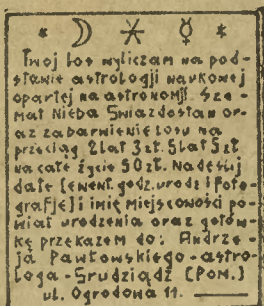 Twoj los wyliczam na pod-
stawie astrologji naukowej
opartej na astronomji. Sze-
mat Nieba Gwiazdostan or-
az zabarwienie losu na
przeciąg 2lat 3zł. 5lat 5zł
na całe życie 50zł. Nadesłij
datę (ewent. godz. urodz i foto-
grafję) i imię miejscowości po-
wiat urodzenia oraz gotów-
kę przekazem do: Andrze-
ja Pawłowskiego - astro-
loga - Grudziądź (POM.)
ul. Ogrodowa 11.